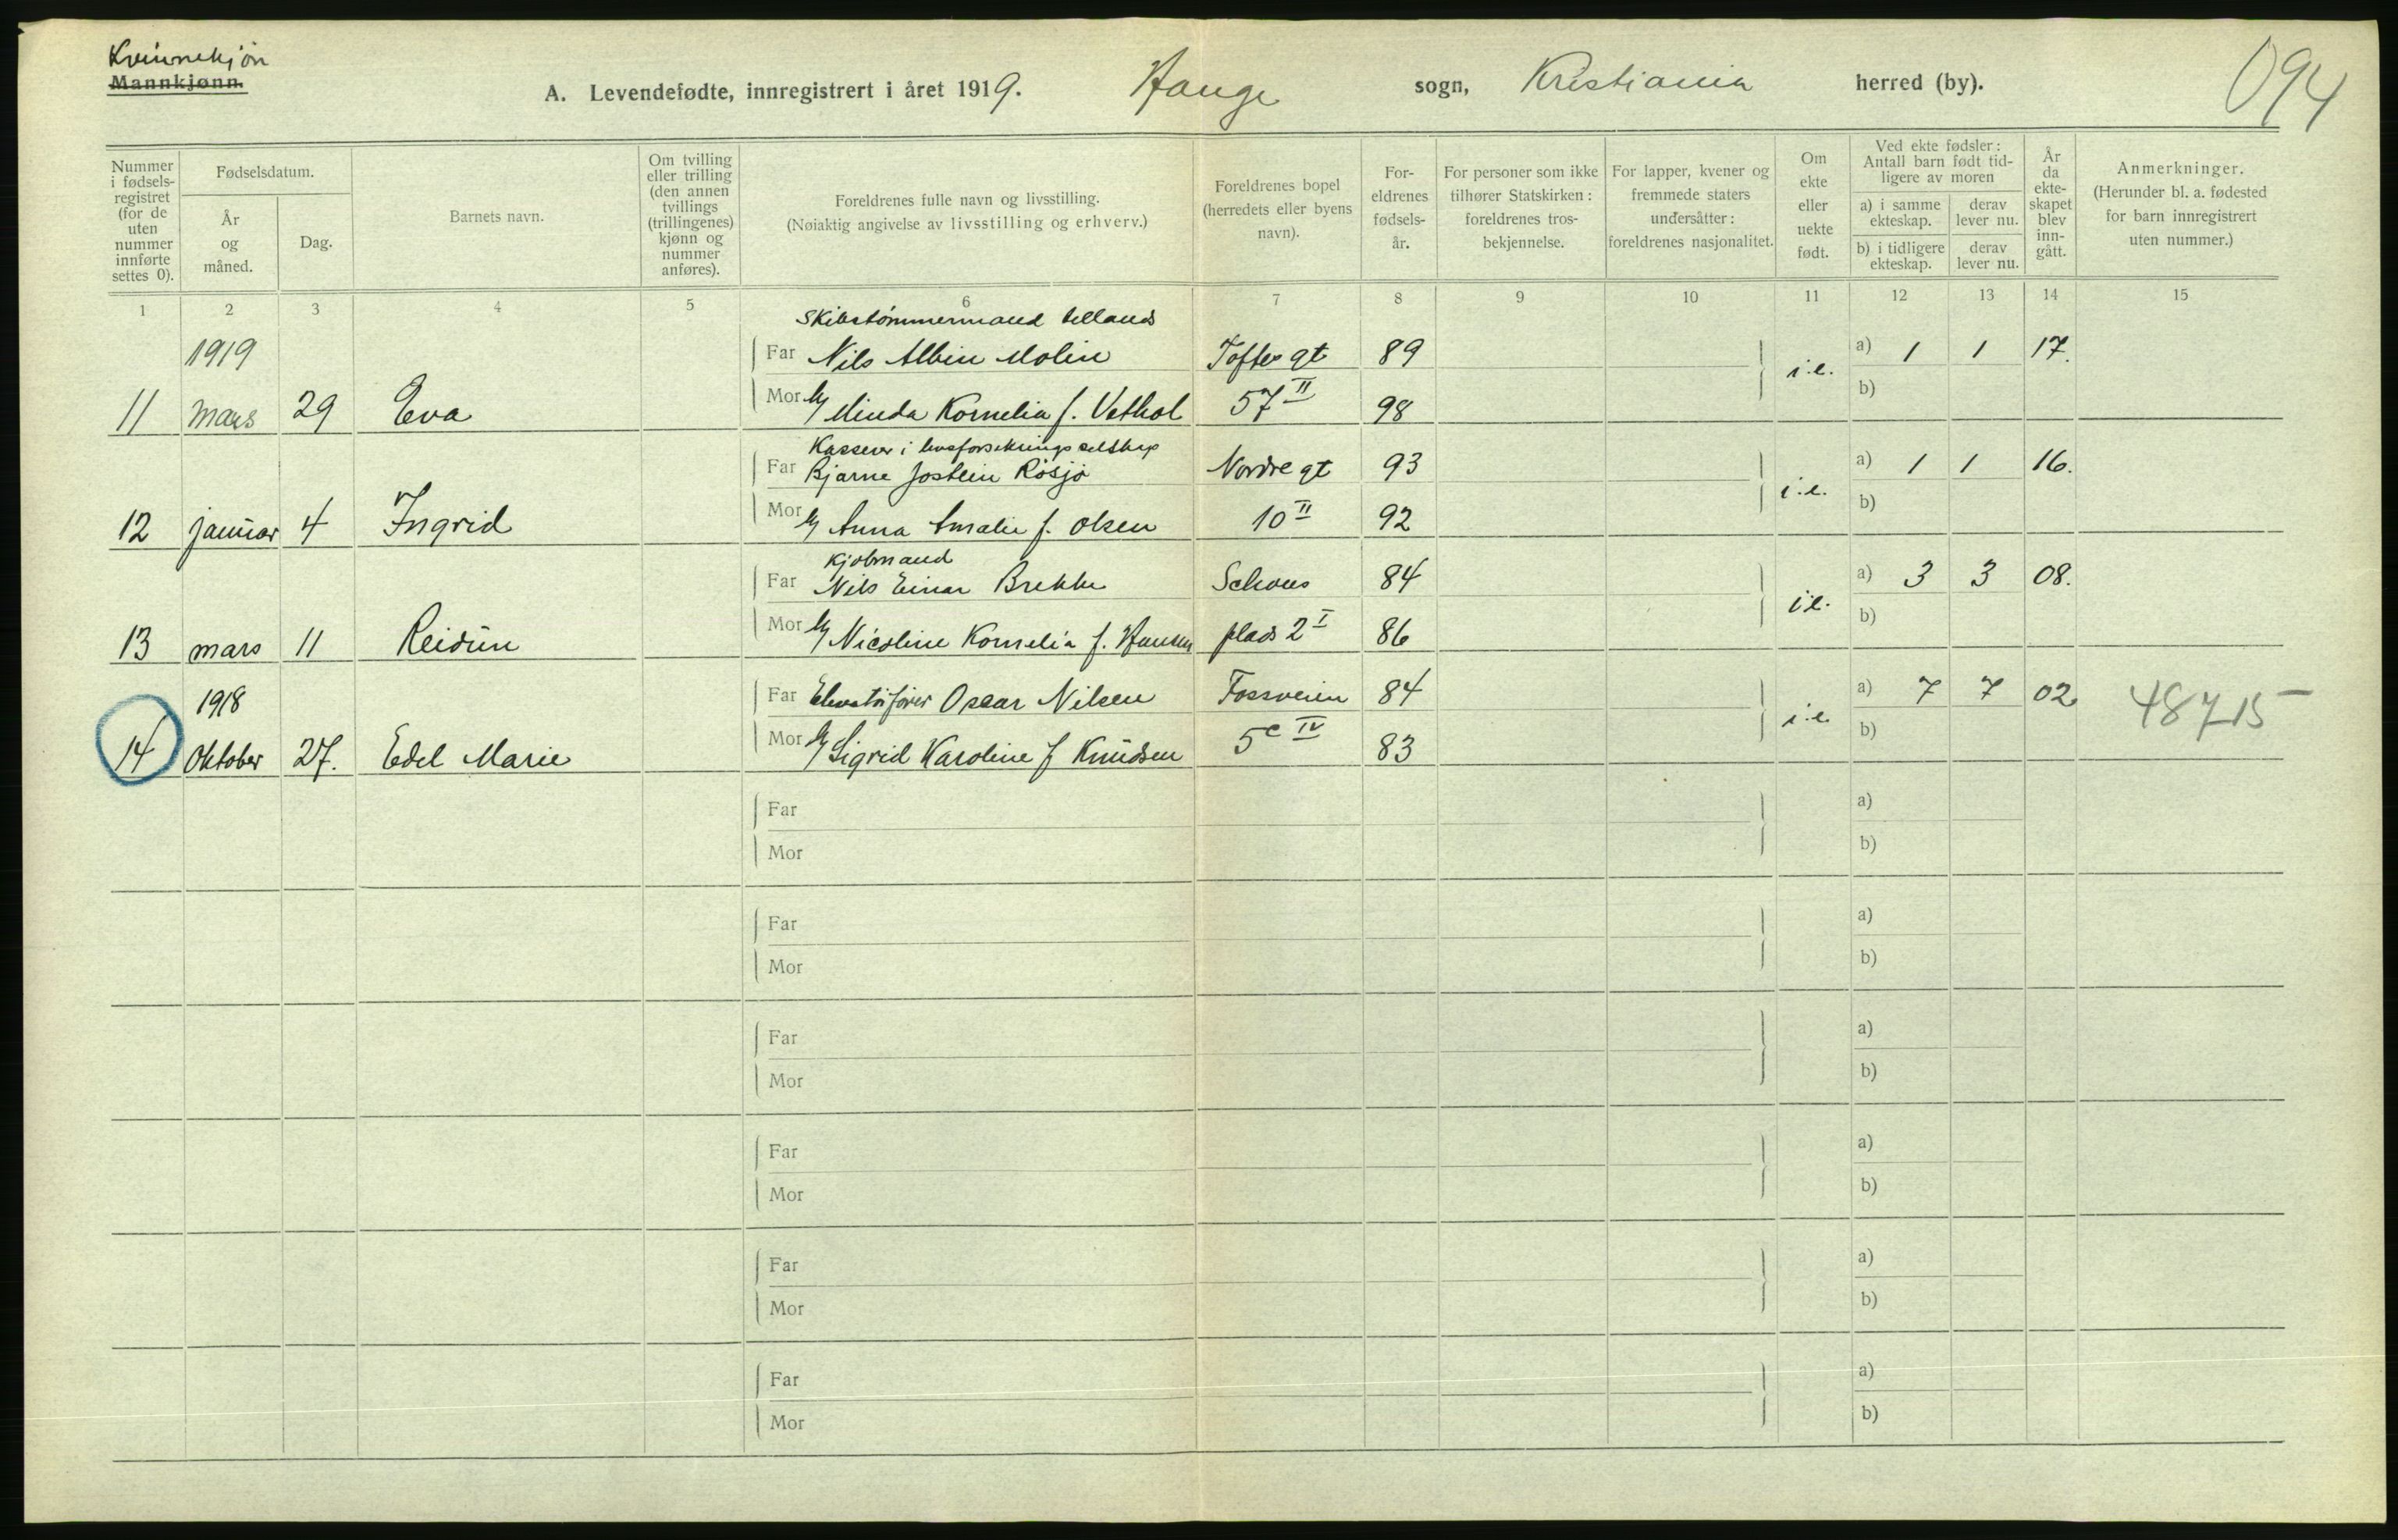 Kvinnekjøn
Mannkjønn.
A. Levendefødte, innregistrert i året 1919. Hauge sogn, Kristiania herred (by).
094
Nummer i fødselsregistret (for de uten nummer innførte settes 0).
Fødselsdatum.
År og måned.
Dag.
Barnets navn.
Om tvilling eller trilling (den annen tvillings (trillingenes) kjønn og nummer anføres).
Foreldrenes fulle navn og livsstilling.
(Nøiaktig angivelse av livsstilling og erhverv.)
Foreldrenes bopel (herredets eller byens navn).
Foreldrenes fødselsår.
For personer som ikke tilhører Statskirken: foreldrenes trosbekjennelse.
For lapper, kvener og fremmede staters undersåtter: foreldrenes nasjonalitet.
Om ekte eller uekte født.
Ved ekte fødsler: Antall barn født tidligere av moren
a) i samme ekteskap.
derav lever nu.
b) i tidligere ekteskap.
derav lever nu.
År da ekteskapet blev inngått.
Anmerkninger.
(Herunder bl. a. fødested for barn innregistrert uten nummer.)
1 2 3 4 5 6 7 8 9 10 11 12 13 14 15
Skibstømmermand tellands
1919 Far Nils Albin Molin Toftes gt 89 i.e. a) 1 1 17.
11 mars 29 Eva Mor Minda Kornelia f. Vethal 57 II 98 b)
Kasserer i livsforsikringsselskap
Far Bjarne Jostein Rösjø Nordre gt 93 i.e. a) 1 1 16.
12 januar 4 Ingrid Mor Anna Amalie f. Olsen 10 II 92 b)
Kjøbmand
Far Nils Einar Brekke Schous 84 i.e. a) 3 3 08.
13 mars 11 Reidun Mor Nicoline Kornelia f. Hansen plads 2 I 86 b)
1918 Far Elevatorfører Oscar Nilsen Fossveien 84 i.e. a) 7 7 02. 48715
14 Oktober 27. Edel Marie Mor Sigrid Karoline f Knudsen 5c IV 83 b)
Far a)
Mor b)
Far a)
Mor b)
Far a)
Mor b)
Far a)
Mor b)
Far a)
Mor b)
Far a)
Mor b)